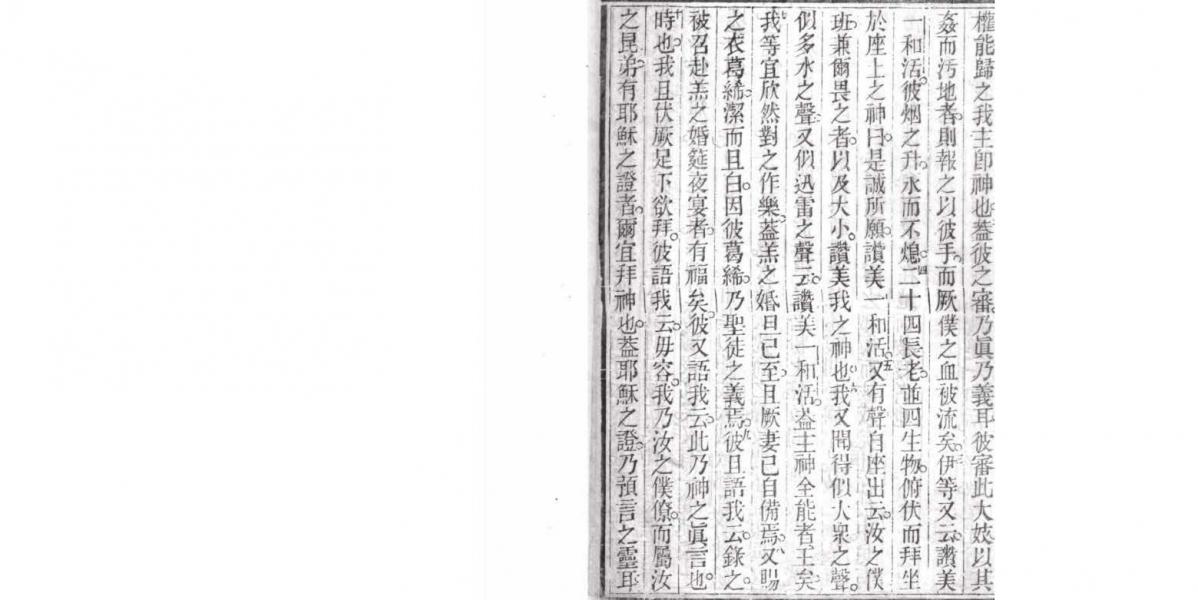 權能歸之我主卽神也蓋彼之審乃眞乃義耳彼審此大妓以其
姦而汚地者則報之以彼手而厥僕之血被流矣三伊等又云讚美
一和活彼烟之升永而不熄四二十四長老並四生物俯伏而拜坐
於座上之神曰是誠所願讚美一和活五又有聲自座出云汝之僕
班兼爾畏之者以及大小讚美我之神也六我又聞得似大衆之聲
似多水之聲又似迅雷之聲云讚美一和活蓋主神全能者王矣
七我等宜欣然對之作樂蓋羔之婚旦已至且厥妻已自備焉八又賜
之衣葛絺潔而且白因彼葛絺乃聖徒之義焉九彼且語我云錄之
被召赴羔之婚筵夜宴者有福矣彼又語我云此乃神之眞言也
十時也我且伏厥足下欲拜彼語我云毋容我乃汝之僕僚而屬汝
之昆弟有耶穌之證者爾宜拜神也蓋耶穌之證乃預言之靈耳